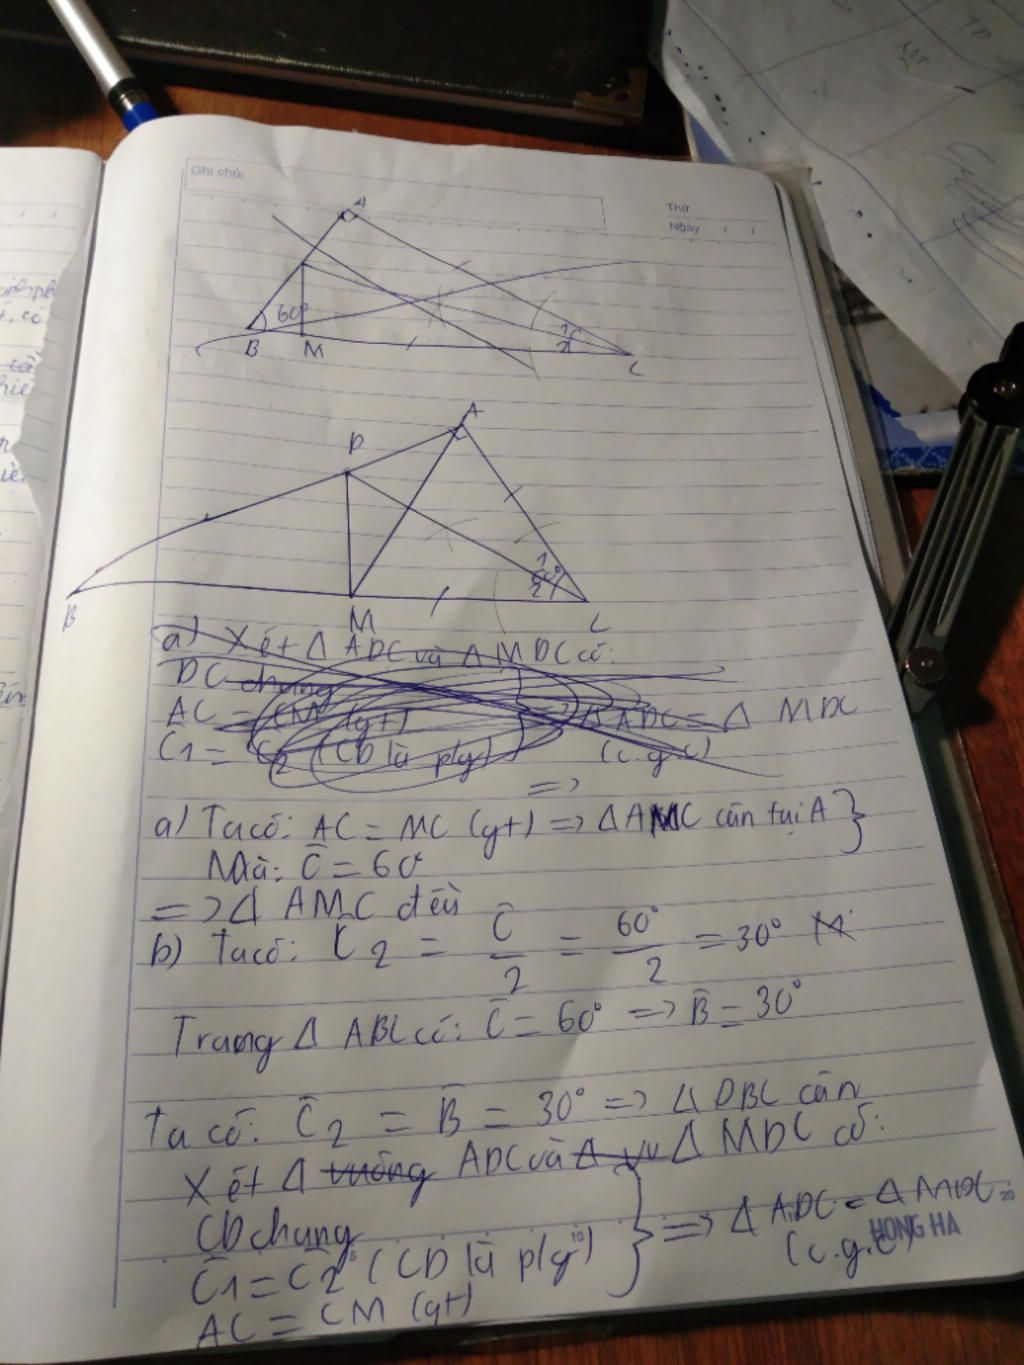 Ghi chú:
Thứ
Ngày
A
60°
1
2
B
M
C
A
D
1
60°
2
B
M
C
a) Xét Δ ADC và Δ MDC có:
DC chung
AC = CM (gt)
=> Δ ADC = Δ MDC
C1 = C2 (CD là p/g)
(c.g.c)
=>
a) Ta có: AC = MC (gt) => Δ AMC cân tại A }
Mà: C = 60°
=> Δ AMC đều
b) Ta có: C2 = C/2 = 60°/2 = 30° M
Trong Δ ABC có: C = 60° => B = 30°
Ta có: C2 = B = 30° => Δ DBC cân
Xét Δ vuông ADC và Δ vu Δ MDC có:
CD chung
C1 = C2 (CD là p/g)
=> Δ ADC = Δ MDC
(c.g.c)
AC = CM (gt)
HONG HA
5
10
20